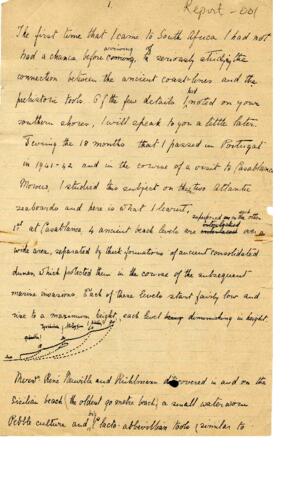 1.
Report - 001
The first time that I came to South Africa I had not
had a chance before arriving coming, of seriously studying the
connection between the ancient coast-lines and the
prehistoric tools. Of the few details I noted on your
southern shores, I will speak to you a little later.
During the 10 months that I passed in Portugal
in 1941-42 and in the course of a visit to Casablanca
Morocco, I studied this subject on the two Atlantic
seaboards and here is what I learnt,
1st at Casablanca, 4 ancient beach levels are superposed on the other over a
wide area, separated by thick formations of ancient consolidated
dunes, which protected them in the course of the subsequent
marine invasions. Each of these levels start fairly low and
rise to a maximum height, each level being diminishing in height.
Messrs René Neuville and Rühlmann discovered in and on the
Sicilian beach (the oldest 90 metre beach) a small waterworn
Pebble culture and big Clacto-abbevillian tools (similar to